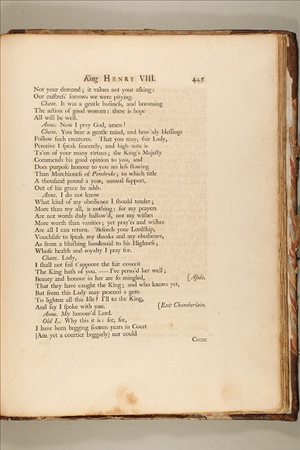 King HENRY VIII. 445
Not your demand; it values not your asking:
Our mistress' sorrows we were pitying.
Cham. It was a gentle business, and becoming
The action of good women: there is hope
All will be well.
Anne. Now I pray God, amen!
Cham. You bear a gentle mind, and heav'nly blessings
Follow such creatures. That you may, fair Lady,
Perceive I speak sincerely, and high note is
Ta'en of your many virtues; the King's Majesty
Commends his good opinion to you, and
Does purpose honour to you no less flowing
Than Marchioness of Pembroke; to which title
A thousand pound a year, annual support,
Out of his grace he adds.
Anne. I do not know
What kind of my obedience I should tender;
More than my all, is nothing: for my prayers
Are not words duly hallow'd, nor my wishes
More worth than vanities; yet pray'rs and wishes
Are all I can return. 'Beseech your Lordship,
Vouchsafe to speak my thanks and my obedience,
As from a blushing handmaid to his Highness;
Whose health and royalty I pray for.
Cham. Lady,
I shall not fail t'approve the fair conceit
The King hath of you. — I've perus'd her well;
Beauty and honour in her are so mingled, [Aside.
That they have caught the King; and who knows yet,
But from this Lady may proceed a gem
To lighten all this Isle? I'll to the King,
And say I spoke with you. [Exit Chamberlain.
Anne. My honour'd Lord.
Old L. Why this it is: see, see,
I have been begging sixteen years in Court
(Am yet a courtier beggarly) nor could
Come